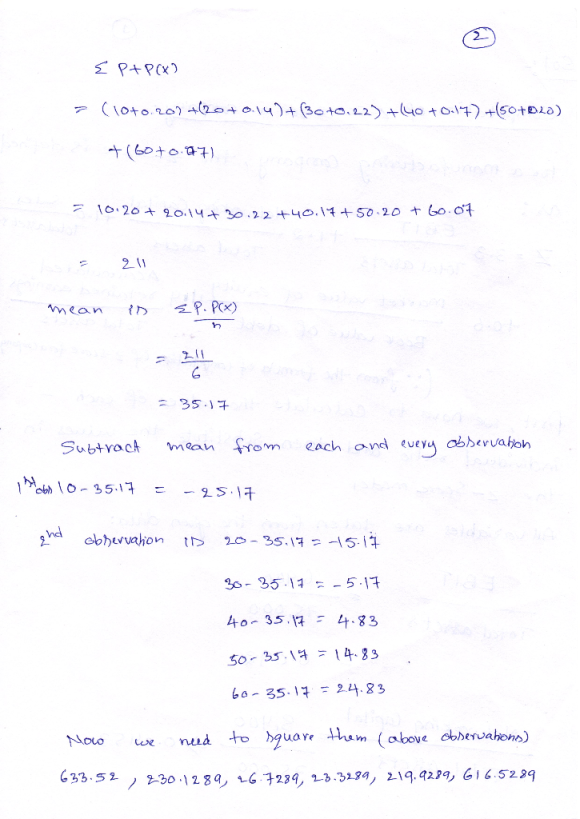 2
Σ P+P(X)
= (10+0.20)+(20+0.14)+(30+0.22)+(40+0.17)+(50+0.20)
+(60+0.07)
= 10.20+20.14+30.22+40.17+50.20+60.07
= 211
mean is ΣP.P(X)/n
= 211/6
= 35.17
Subtract mean from each and every observation
1st obs 10-35.17 = -25.17
2nd observation is 20-35.17=-15.17
30-35.17=-5.17
40-35.17= 4.83
50-35.17=14.83
60-35.17=24.83
Now we need to square them (above observations)
633.52, 230.1289, 26.7289, 23.3289, 219.9289, 616.5289